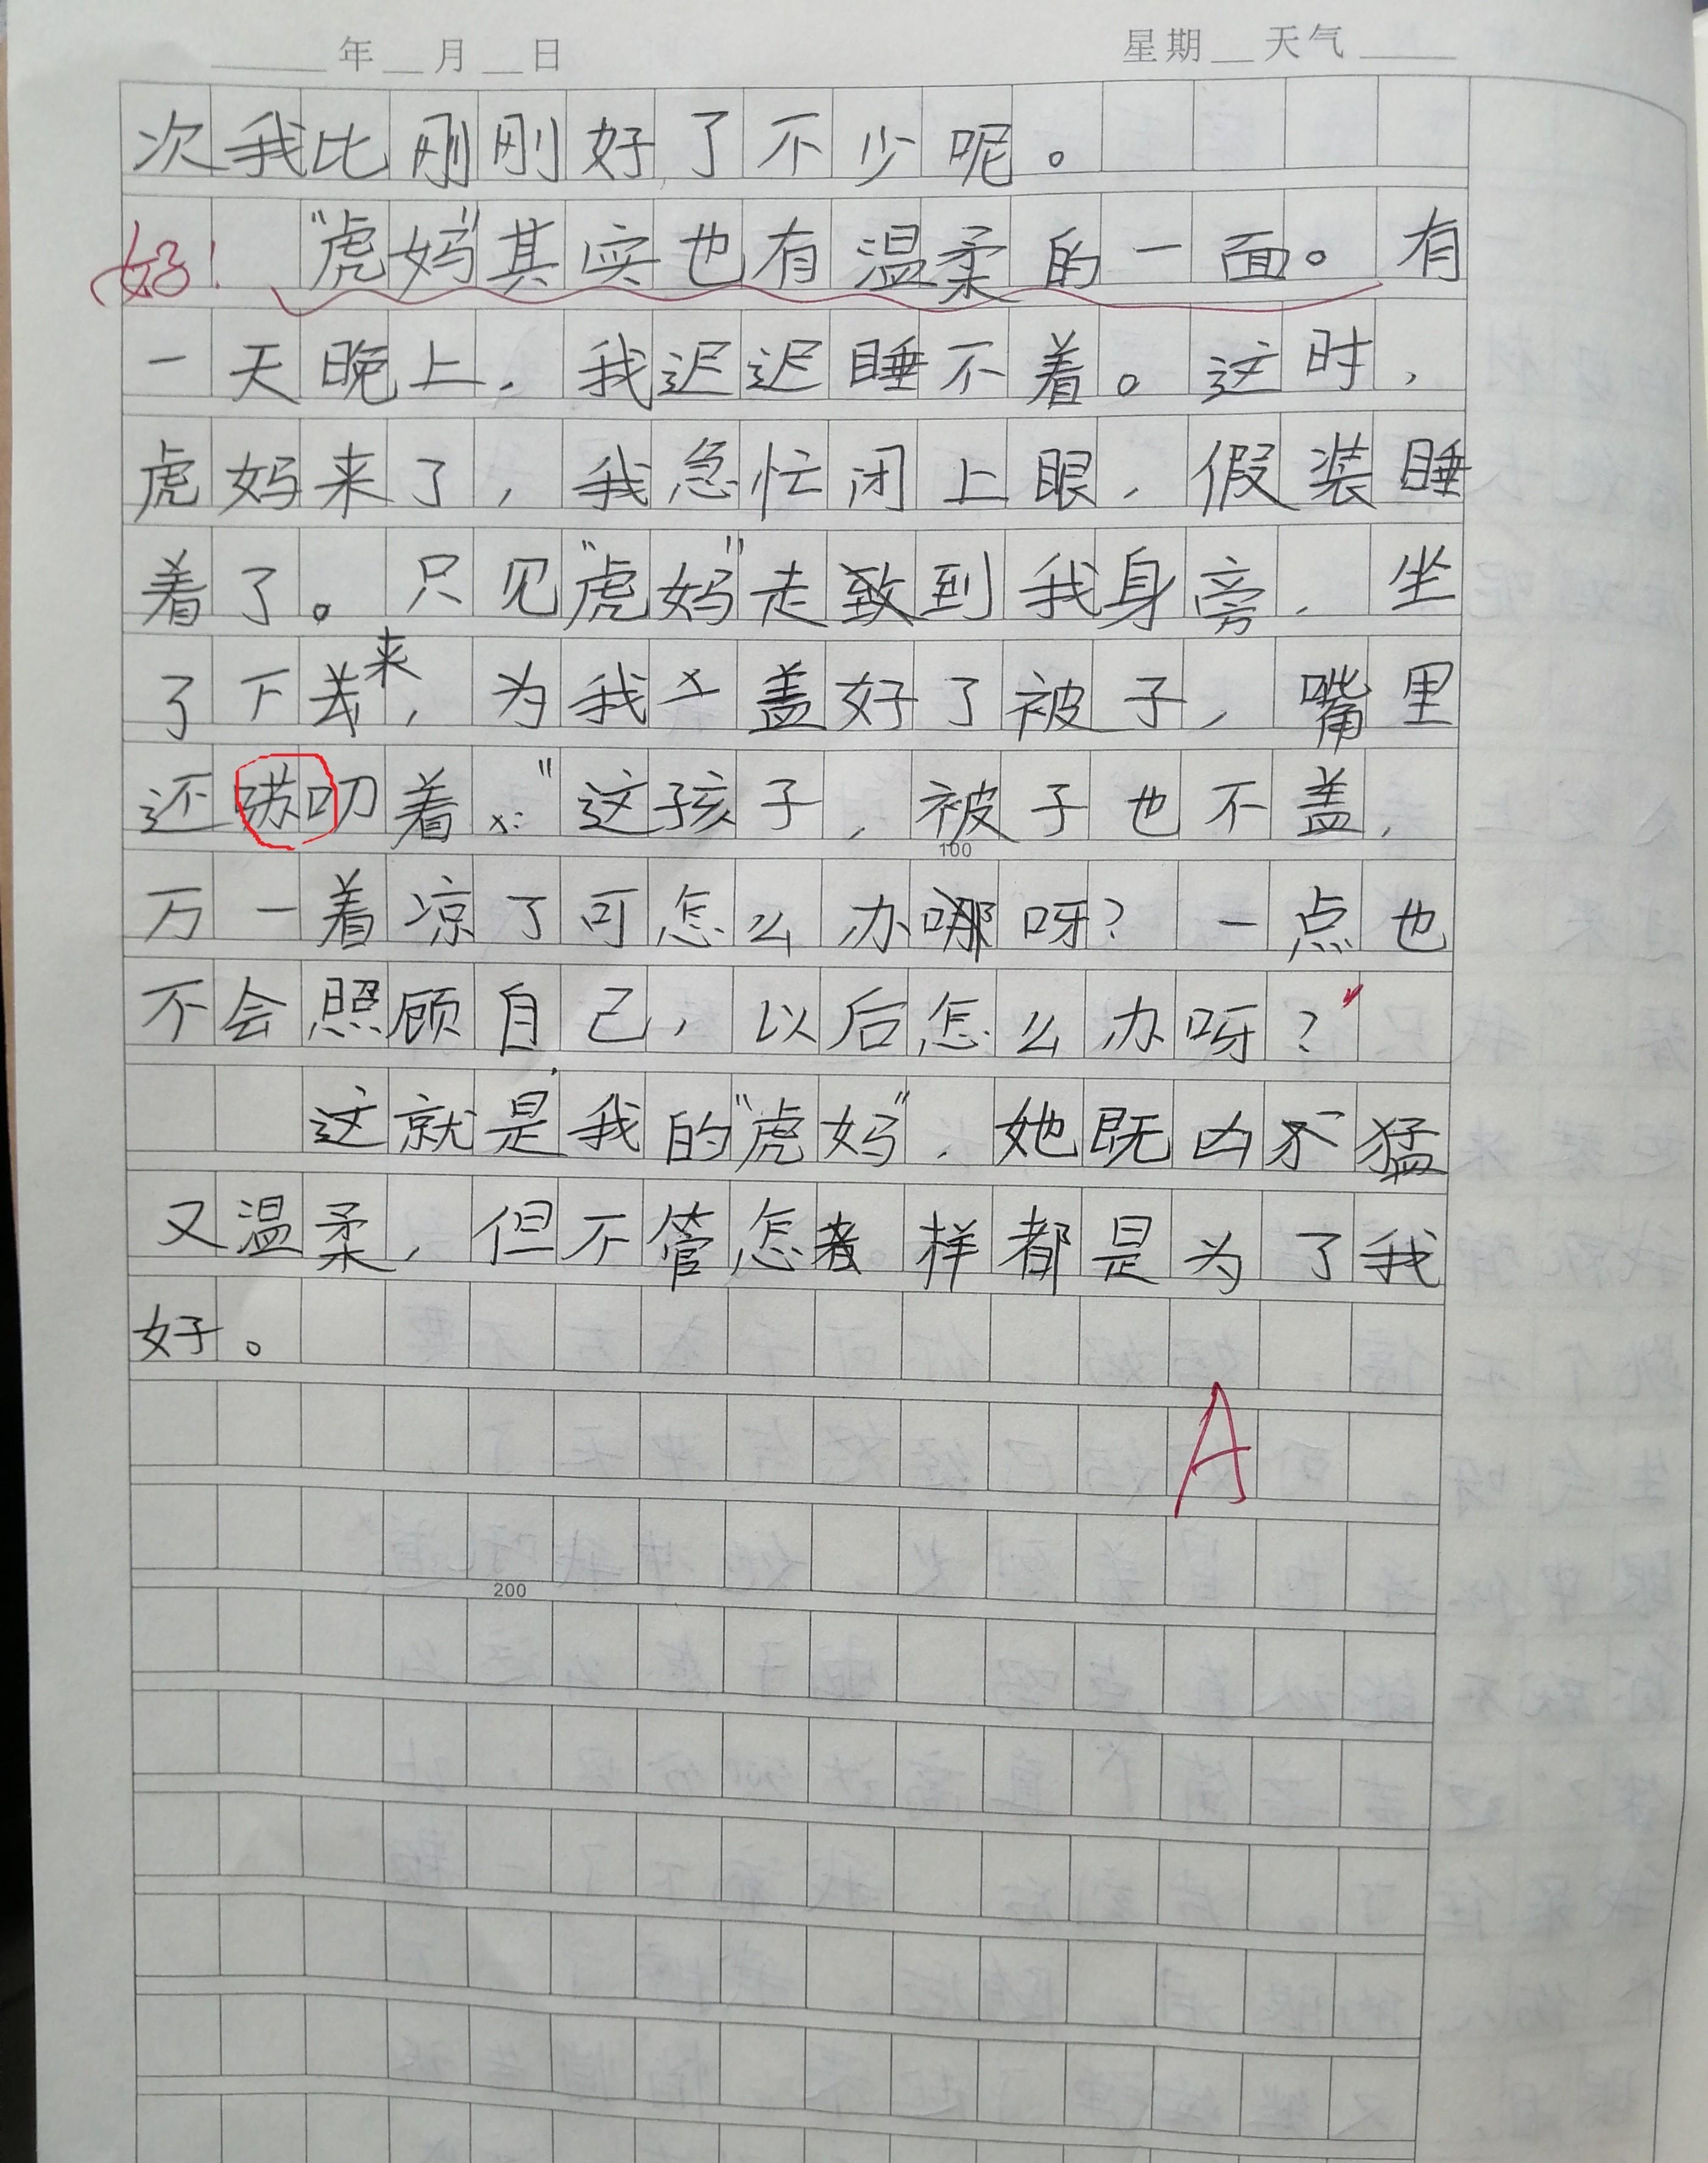 年 月 日 星期 天气
次我比刚刚好了不少呢。
好！ “虎妈”其实也有温柔的一面。有
一天晚上，我迟迟睡不着。这时，
虎妈来了，我急忙闭上眼，假装睡
着了。只见“虎妈”走到我身旁，坐
了下来，为我盖好了被子，嘴里
还叨着：“这孩子，被子也不盖，
100
万一着凉了可怎么办呀？一点也
不会照顾自己，以后怎么办呀？”
这就是我的“虎妈”，她既凶猛
又温柔，但不管怎样都是为了我
好。
A
200